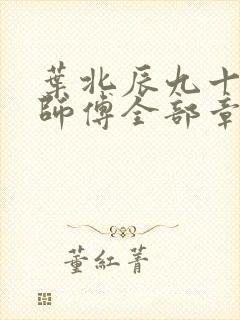 葉北辰九十
師傅全部章
董紅菁